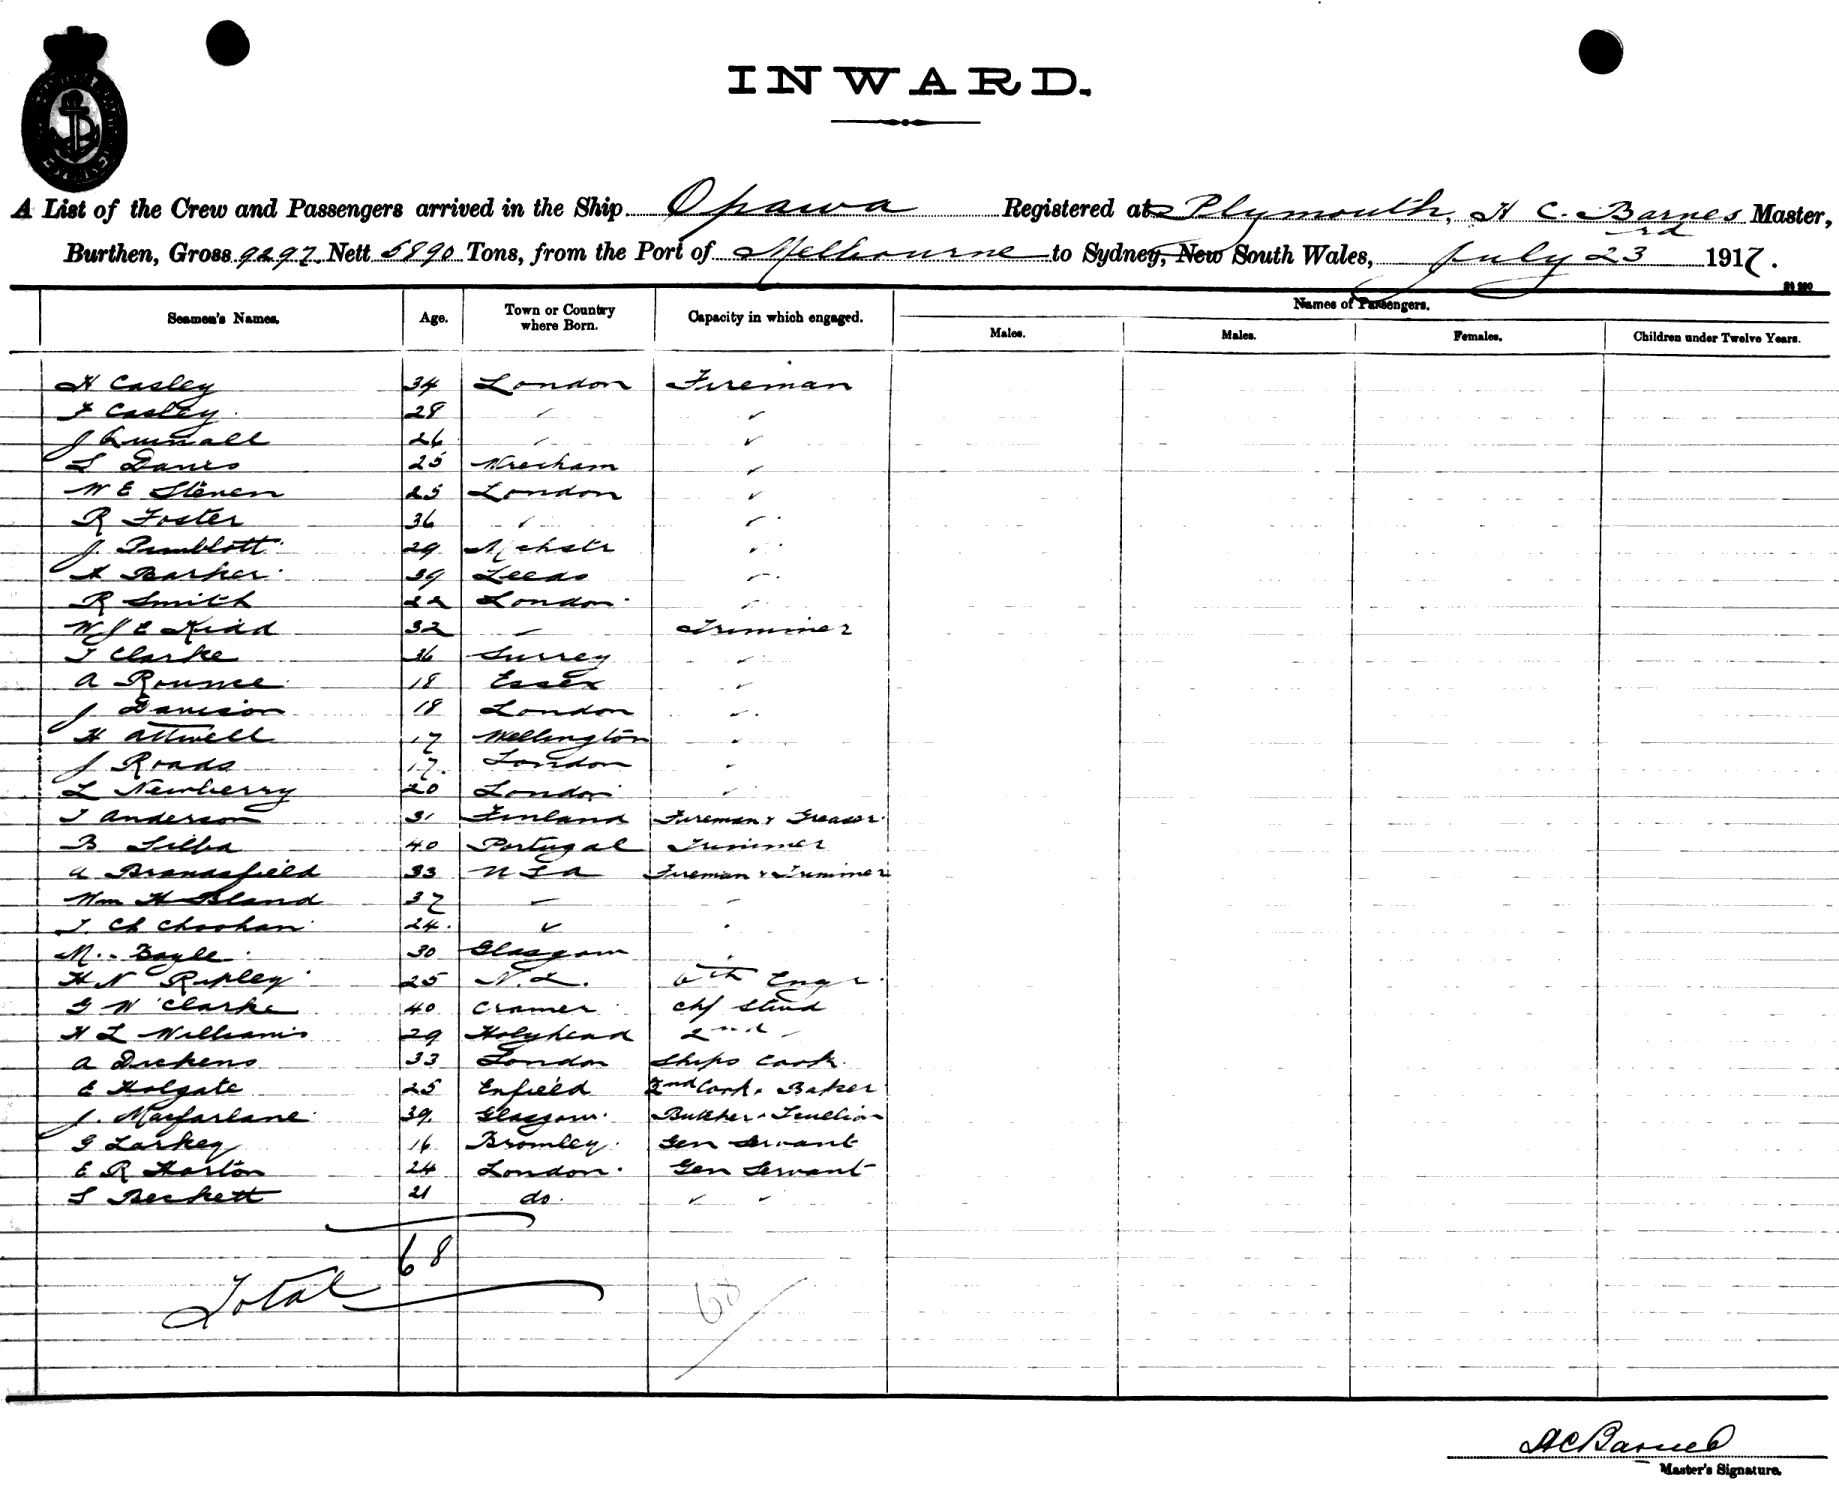 INWARD.
A List of the Crew and Passengers arrived in the Ship Opawa Registered at Plymouth, H C. Barnes Master,
Burthen, Gross 9297 Nett 5890 Tons, from the Port of Melbourne to Sydney, New South Wales, July 23rd 1917.
Names of Passengers.
Seamen's Names. Age. Town or Country where Born. Capacity in which engaged. Males. Males. Females. Children under Twelve Years.
H Casley 34 London Fireman
F Casley 28 " "
J 26 " "
L Davies 25 Wrexham "
W E Steven 25 London "
R Foster 36 " "
J. Pimblott 29 "
A Barker 39 Leeds "
R Smith 22 London "
W J E Kidd 32 " Trimmer
T Clarke 36 Surrey "
A Rounce 18 Essex "
J Davison 18 London "
H Attwell 17 Wellington "
J Roads 17. London "
L Newberry 20 London "
T Anderson 31 Finland Fireman & Greaser
B Silba 40 Portugal Trimmer
A Bransfield 33 U S A Fireman & Trimmer
Wm H Bland 37 " "
T. 24. " "
M. Boyle 30 Glasgow "
H N Ripley 25 N.Z. 6th Engr
G W Clarke 40 Cromer Chf Stwd
H L Williams 29 Holyhead 2nd "
A Dickens 33 London Ships Cook.
E Holgate 25 Enfield 2nd Cook & Baker
J. Macfarlane 39. Glasgow. Butcher &
G Larkey 16 Bromley. Gen Servant
E R Horton 24 London. Gen Servant
S Beckett 21 do. " "
68
Total
HCBarnes
Master's Signature.